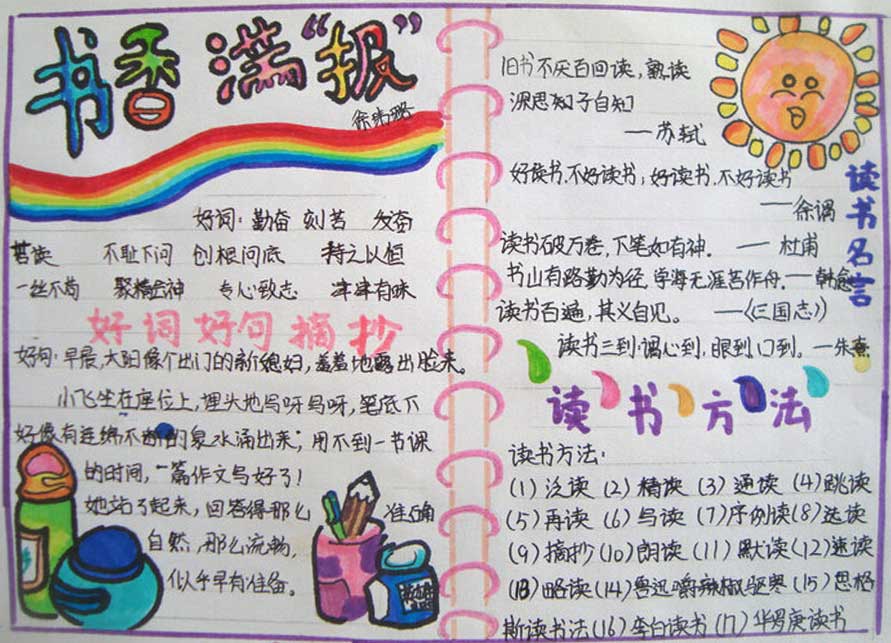 书香满“报”
好词：勤奋 刻苦 发奋
苦读 不耻下问 创根问底 持之以恒
一丝不苟 聚精会神 专心致志 津津有味
好词好句摘抄
好句：早晨，太阳像个出门的新媳妇，羞羞地露出脸来。
小飞坐在座位上，埋头地写呀写呀，笔底下
好像有连绵不断的泉水涌出来；用不到一节课
的时间，一篇作文写好了！
她站了起来，回答得那么准确
自然，那么流畅，
似乎早有准备。
旧书不厌百回读，熟读
深思知子自知
——苏轼
好读书，不好读书；好读书，不好读书
——徐渭
读书破万卷，下笔如有神。——杜甫
书山有路勤为径，学海无涯苦作舟。——韩愈
读书百遍，其义自见。——《三国志》
读书三到：谓心到，眼到口到。——朱熹
读书名言
读书方法
读书方法：
(1) 泛读 (2) 精读 (3) 通读 (4) 跳读
(5) 再读 (6) 写读 (7) 序例读 (8) 选读
(9) 摘抄 (10) 朗读 (11) 默读 (12) 速读
(13) 略读 (14) 鲁迅嚼辣椒驱寒 (15) 思格
斯读书法 (16) 李白读书 (17) 华罗庚读书